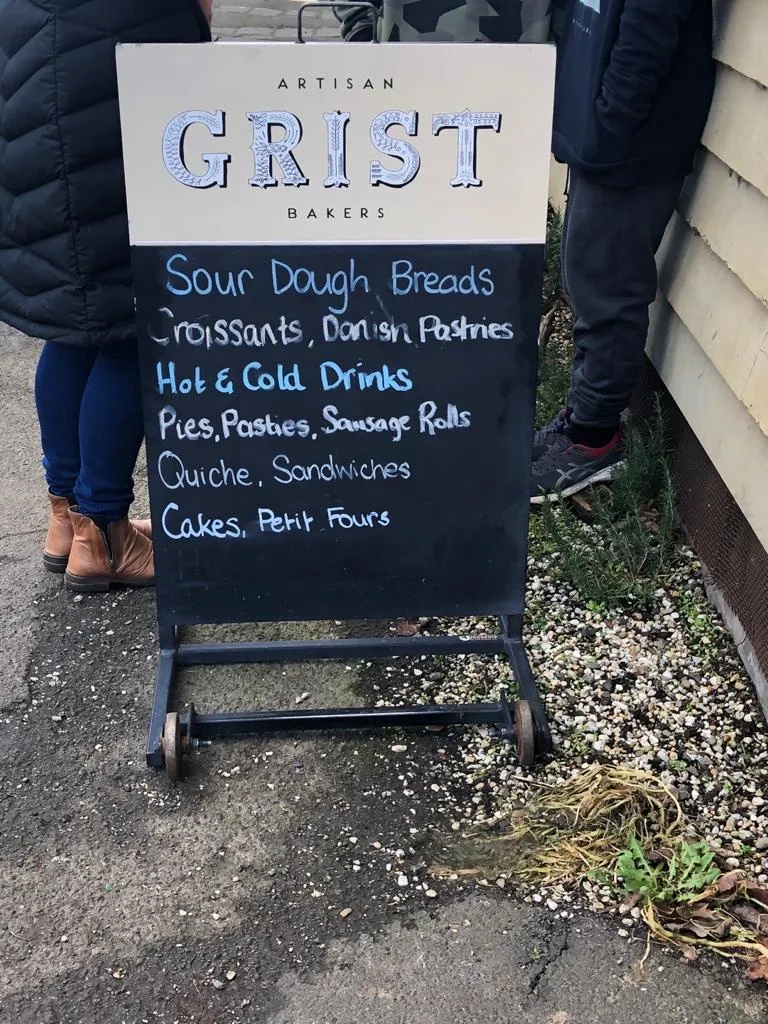 ARTISAN
GRIST
BAKERS
Sour Dough Breads
Croissants, Danish Pastries
Hot & Cold Drinks
Pies, Pasties, Sausage Rolls
Quiche, Sandwiches
Cakes, Petit Fours